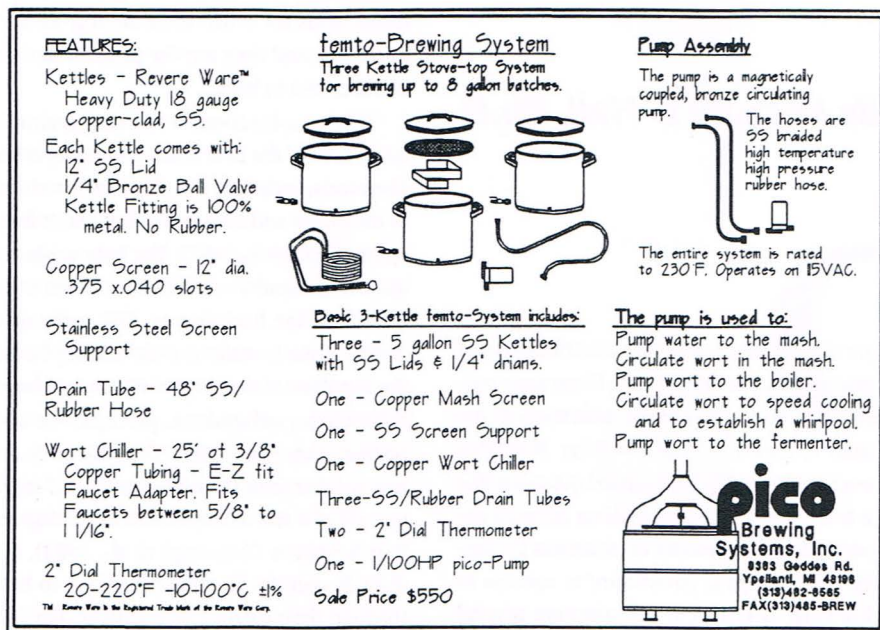 FEATURES:
Kettles - Revere Ware™
Heavy Duty 18 gauge
Copper-clad, SS.
Each Kettle comes with:
12" SS Lid
1/4" Bronze Ball Valve
Kettle Fitting is 100%
metal. No Rubber.
Copper Screen - 12" dia.
.375 x.040 slots
Stainless Steel Screen
Support
Drain Tube - 48" SS/
Rubber Hose
Wort Chiller - 25' of 3/8"
Copper Tubing - E-Z fit
Faucet Adapter. Fits
Faucets between 5/8" to
1 1/16".
2" Dial Thermometer
20-220°F -10-100°C ±1%
TM Revere Ware is the Registered Trade Mark of the Revere Ware Corp.
femto-Brewing System
Three Kettle Stove-top System
for brewing up to 8 gallon batches.
Basic 3-Kettle femto-System includes:
Three - 5 gallon SS Kettles
with SS Lids & 1/4" drians.
One - Copper Mash Screen
One - SS Screen Support
One - Copper Wort Chiller
Three-SS/Rubber Drain Tubes
Two - 2" Dial Thermometer
One - 1/100HP pico-Pump
Sale Price $550
Pump Assembly
The pump is a magnetically
coupled, bronze circulating
pump.
The hoses are
SS braided
high temperature
high pressure
rubber hose.
The entire system is rated
to 230°F. Operates on 115VAC.
The pump is used to:
Pump water to the mash.
Circulate wort in the mash.
Pump wort to the boiler.
Circulate wort to speed cooling
and to establish a whirlpool.
Pump wort to the fermenter.
pico
Brewing
Systems, Inc.
8383 Geddes Rd.
Ypsilanti, MI 48198
(313)482-8565
FAX(313)485-BREW